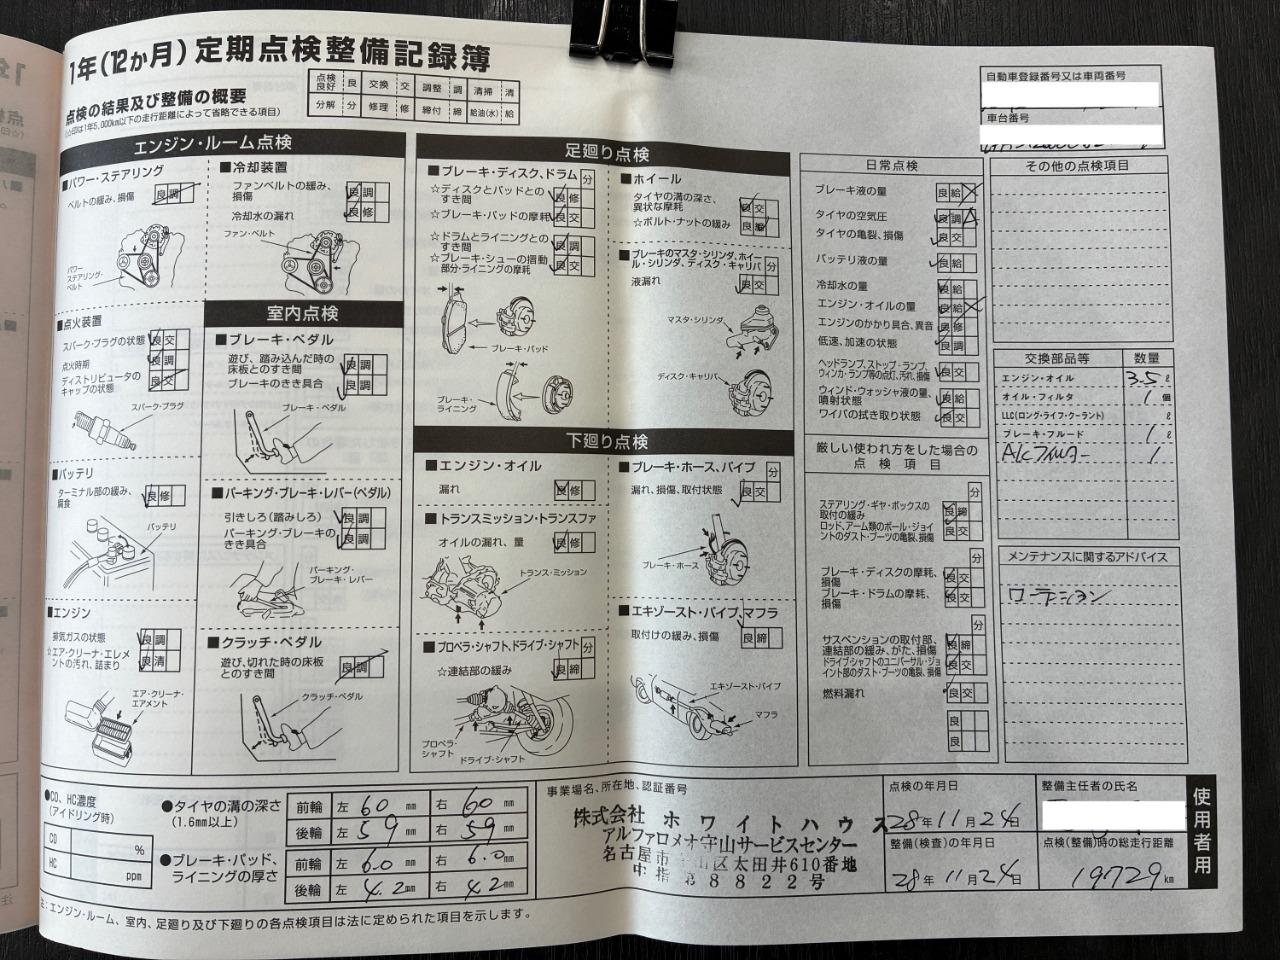 1年(12か月)定期点検整備記録簿
点検の結果及び整備の概要
(☆印は1年5,000km以下の走行距離によって省略できる項目)
点検良好 良 交換 交 調整 調 清掃 清
分解 分 修理 修 締付 締 給油(水) 給
自動車登録番号又は車両番号
車台番号
エンジン・ルーム点検
■パワー・ステアリング
ベルトの緩み、損傷 良 調
パワー・ステアリング・ベルト
■冷却装置
ファンベルトの緩み、損傷 良 調
冷却水の漏れ 良 修
ファン・ベルト
■点火装置
スパーク・プラグの状態 良 交
点火時期 良 調
ディストリビュータのキャップの状態 良 交
スパーク・プラグ
■バッテリ
ターミナル部の緩み、腐食 良 修
バッテリ
■エンジン
排気ガスの状態 良 調
☆エア・クリーナ・エレメントの汚れ、詰まり 良 清
エア・クリーナ・エアメント
室内点検
■ブレーキ・ペダル
遊び、踏み込んだ時の床板とのすき間 良 調
ブレーキのきき具合 良 調
ブレーキ・ペダル
■パーキング・ブレーキ・レバー(ペダル)
引きしろ(踏みしろ) 良 調
パーキング・ブレーキのきき具合 良 調
パーキング・ブレーキ・レバー
■クラッチ・ペダル
遊び、切れた時の床板とのすき間 良 調
クラッチ・ペダル
足廻り点検
■ブレーキ・ディスク、ドラム 分
☆ディスクとパッドとのすき間 良 修
☆ブレーキ・パッドの摩耗 良 交
☆ドラムとライニングとのすき間 良 調
☆ブレーキ・シューの摺動部分・ライニングの摩耗 良 交
ブレーキ・パッド
ブレーキ・ライニング
■ホイール
タイヤの溝の深さ、異状な摩耗 良 交
☆ボルト・ナットの緩み 良
■ブレーキのマスタ・シリンダ、ホイール・シリンダ、ディスク・キャリパ 分
液漏れ 良 交
マスタ・シリンダ
ディスク・キャリパ
下廻り点検
■エンジン・オイル
漏れ 良 修
■トランスミッション・トランスファ
オイルの漏れ、量 良 修
トランス・ミッション
■プロペラ・シャフト、ドライブ・シャフト 分
☆連結部の緩み 良 締
プロペラ・シャフト
ドライブ・シャフト
■ブレーキ・ホース、パイプ 分
漏れ、損傷、取付状態 良 交
ブレーキ・ホース
■エキゾースト・パイプ、マフラ
取付けの緩み、損傷 良 締
エキゾースト・パイプ
マフラ
日常点検
ブレーキ液の量 良 給
タイヤの空気圧 良 調
タイヤの亀裂、損傷 良 交
バッテリ液の量 良 給
冷却水の量 良 給
エンジン・オイルの量 良 給
エンジンのかかり具合、異音 良 修
低速、加速の状態 良 調
ヘッドランプ、ストップ・ランプ、ウィンカ・ランプ等の点灯、汚れ、損傷 良 交
ウィンド・ウォッシャ液の量、噴射状態 良 給
ワイパの拭き取り状態 良 交
厳しい使われ方をした場合の点検項目
分
ステアリング・ギヤ・ボックスの取付の緩み 良 締
ロッド、アーム類のボール・ジョイントのダスト・ブーツの亀裂、損傷 良 交
分
ブレーキ・ディスクの摩耗、損傷 良 交
ブレーキ・ドラムの摩耗、損傷 良 交
分
サスペンションの取付部、連結部の緩み、がた、損傷 良 締
ドライブ・シャフトのユニバーサル・ジョイント部のダスト・ブーツの亀裂、損傷 良 交
燃料漏れ 良 交
良
良
その他の点検項目
交換部品等 数量
エンジン・オイル 3.5 ℓ
オイル・フィルタ 1 個
LLC(ロング・ライフ・クーラント) ℓ
ブレーキ・フルード 1 ℓ
A/Cフィルター 1
メンテナンスに関するアドバイス
ローテーション
●CO、HC濃度
(アイドリング時)
CO %
HC ppm
●タイヤの溝の深さ
(1.6mm以上)
前輪 左 60 mm 右 60 mm
後輪 左 59 mm 右 59 mm
●ブレーキ・パッド、ライニングの厚さ
前輪 左 6.0 mm 右 6.0 mm
後輪 左 4.2 mm 右 4.2 mm
事業場名、所在地、認証番号
株式会社 ホワイトハウス
アルファロメオ守山サービスセンター
名古屋市守山区太田井610番地
中指第8822号
点検の年月日
28年11月24日
整備(検査)の年月日
28年11月24日
整備主任者の氏名
点検(整備)時の総走行距離
19729 km
使用者用
注:エンジン・ルーム、室内、足廻り及び下廻りの各点検項目は法に定められた項目を示します。